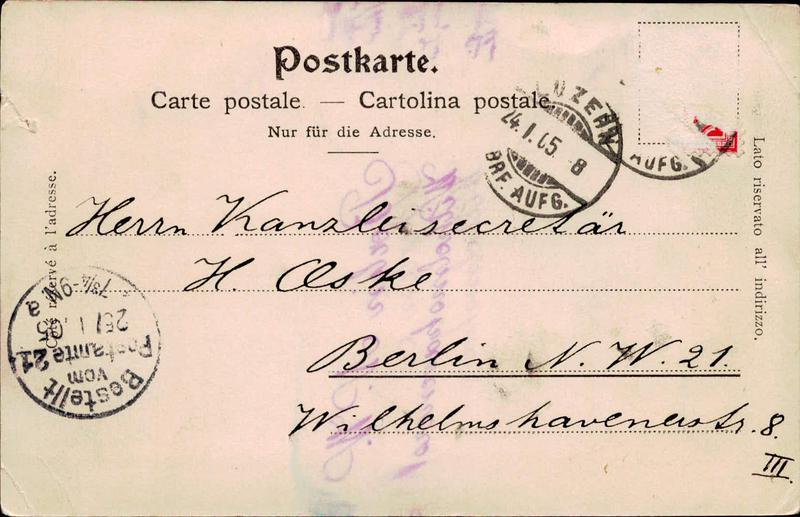 Postkarte.
Carte postale. — Cartolina postale.
Nur für die Adresse.
LUZERN
24. I. 05. - 8
BRF. AUFG.
AUFG.
Côté réservé à l'adresse.
Lato riservato all' indirizzo.
Herrn Kanzleisecretär
H. Oeske
Berlin N. W. 21.
Wilhelmshavenerstr. 8.
III.
Bestellt
vom
Postamte 21
25/1. 05
7¾-9N
a